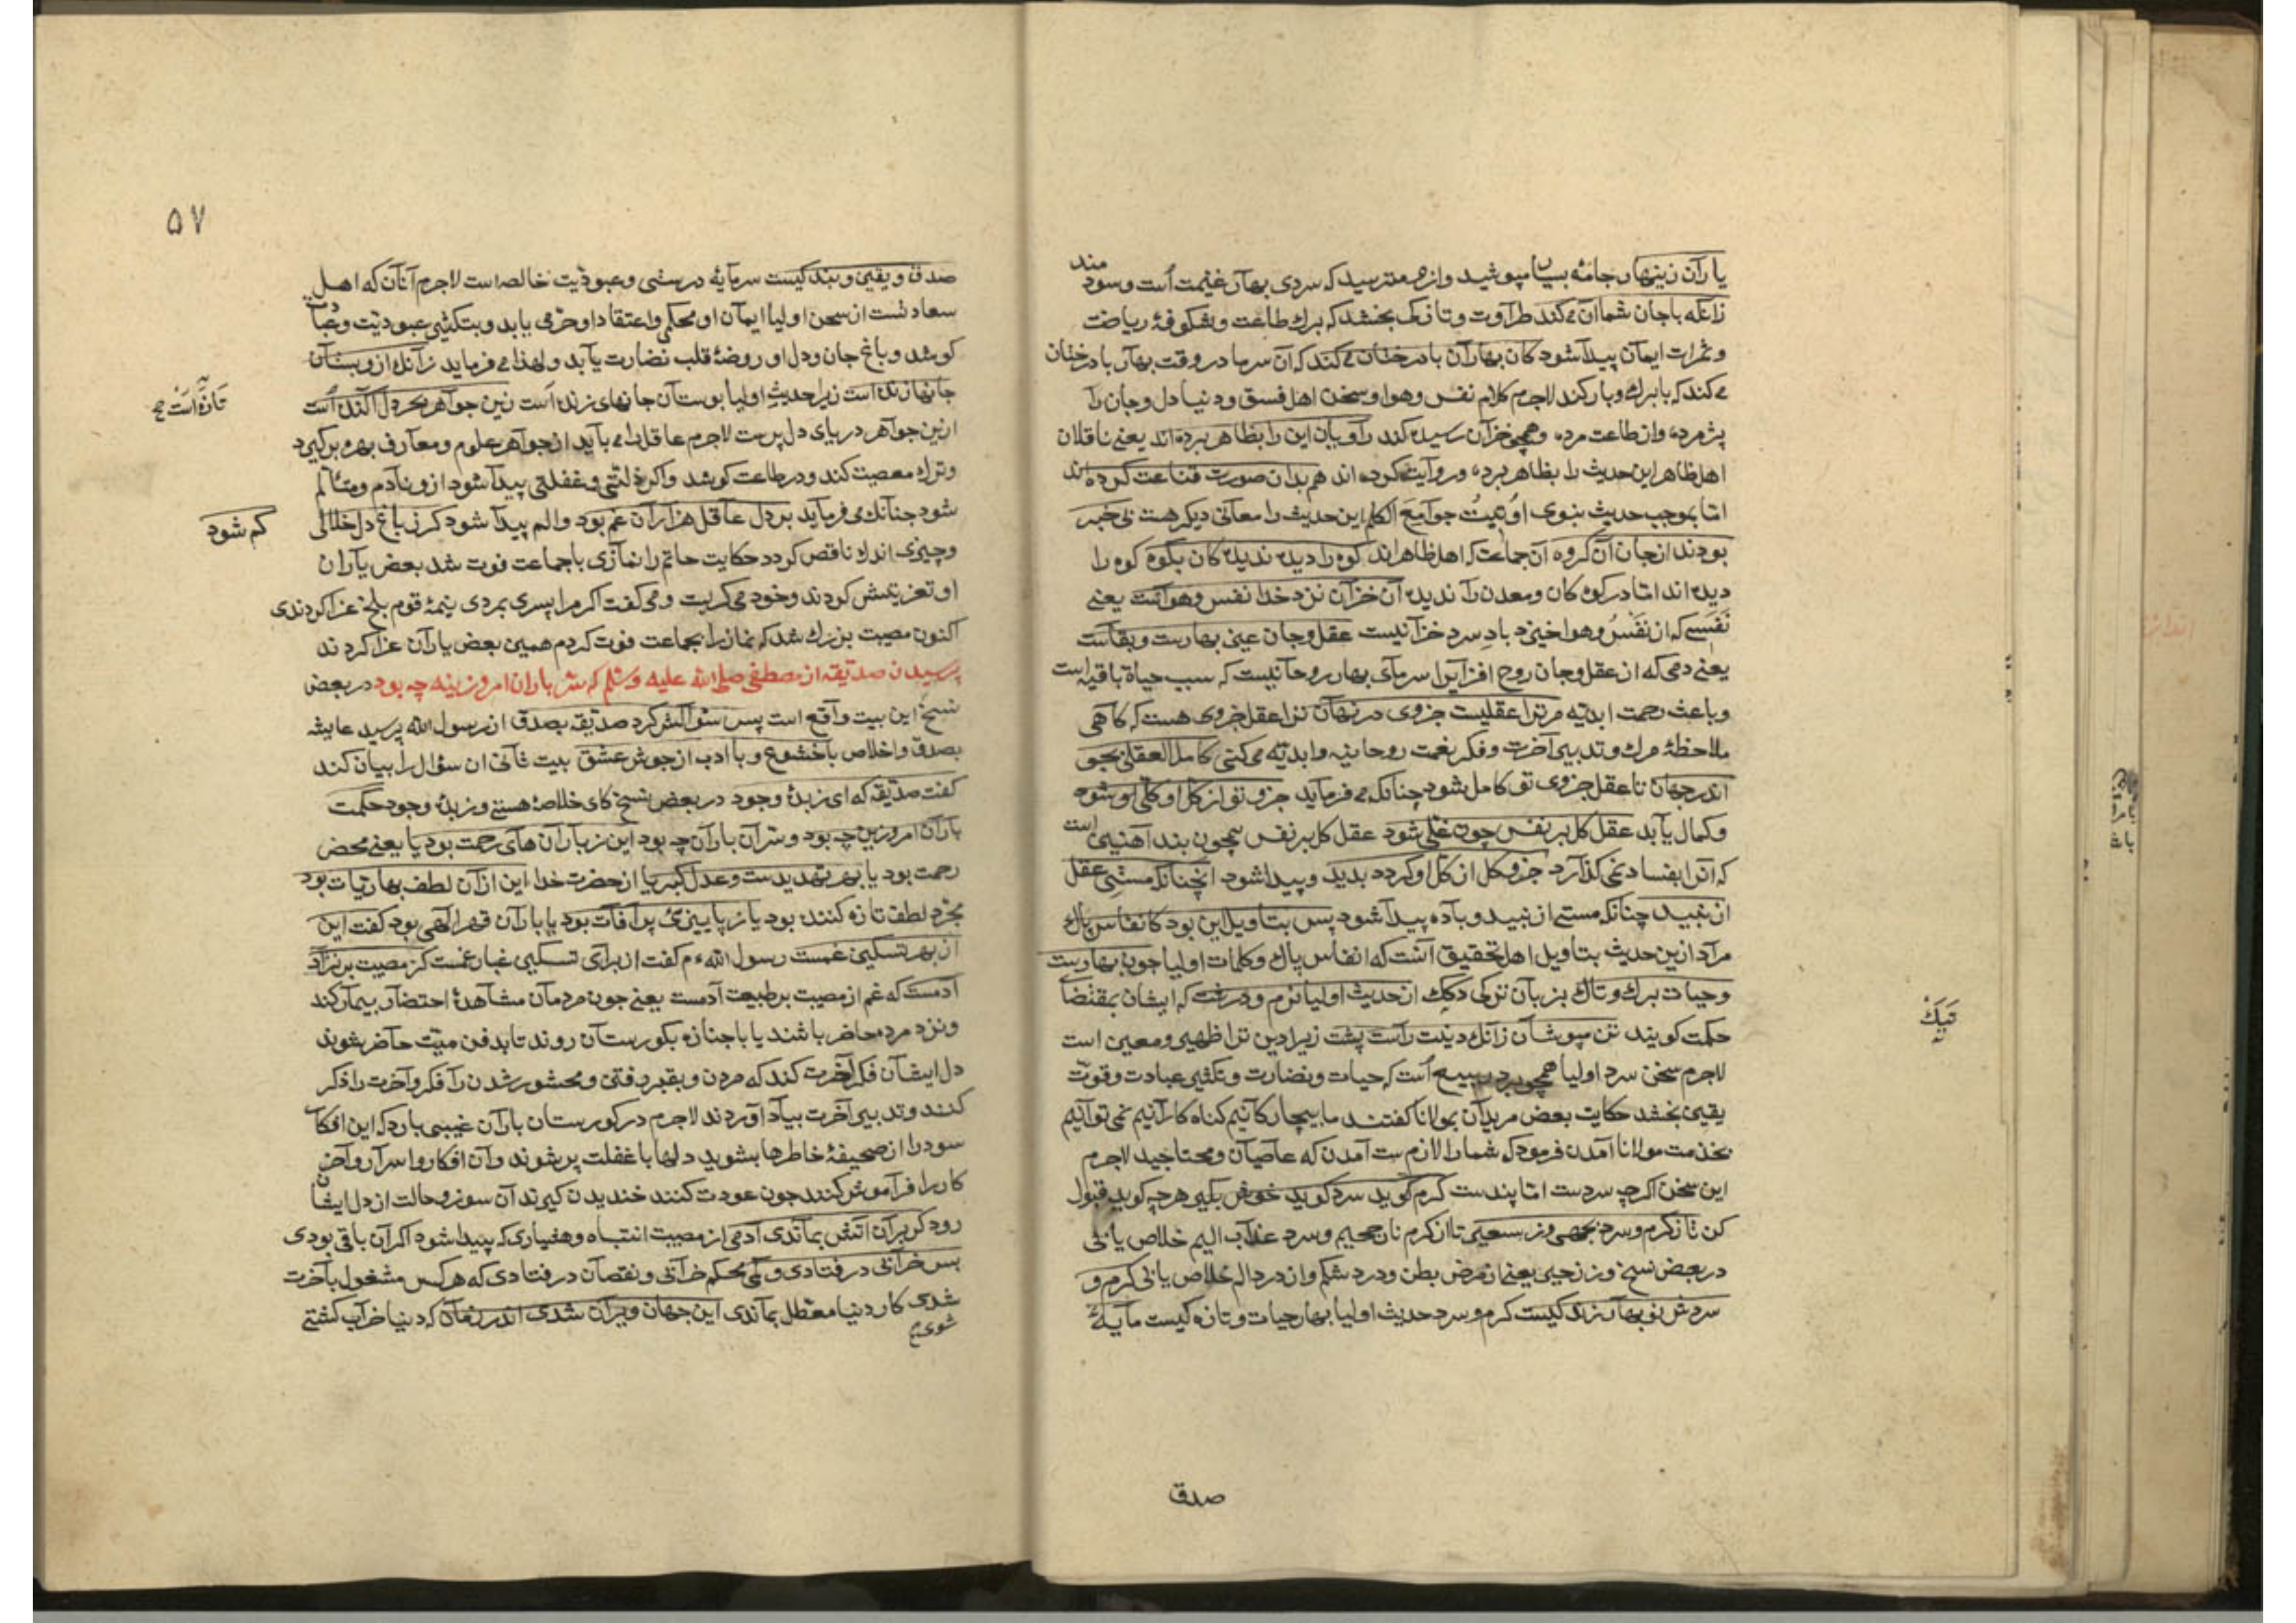 یاران زینهار جامه بسیار مپوشید و از سرما مترسید که سردی بهار غنیمت است و سودمند
زانکه باجان شما آن می کند طراوت و تازکی بخشد که برك طاعت و شکوفهٔ ریاضت
و ثمرات ایمان پیدا شود کان بهاران با درختان می کند که آن سرما در وقت بهار با درختان
می کند که با برك و بار کند لاجرم کلام نفس و هوا و سخن اهل فسق و دنیا دل و جان را
پژمرده و از طاعت مرده و همچو خزان رسیده کند راویان این را بظاهر برده اند یعنی ناقلان
اهل ظاهر این حدیث را بظاهر برده و روایت کرده اند هم بدان صورت قناعت کرده اند
امّا بموجب حدیث نبوی اوتیتُ جوامعَ الکلم این حدیث را معانی دیکر هست بی خبر
بودند از جان آن کروه آن جماعت که اهل ظاهراند کوه را دیده ندیده کان بکوه کوه را
دیده اند امّا در کوه کان و معدن را ندیده آن خزان نزد خدا نفس و هواست یعنی
نَفَسی که از نَفْسُ و هوا خیزد بادِ سرد خزانیست عقل و جان عین بهارست و بقاست
یعنی دمی که از عقل و جان روح افزاید سرمای بهار روحانیست که سبب حیاة باقیه است
و باعث رحمت ابدیّه مر ترا عقلیست جزوی در نهان ترا عقل جزوی هست که کاهی
ملاحظهٔ مرك و تدبیر آخرت و فکر نعمت روحانیه و ابدیّه می کنی کامل العقلی بجو
اندر جهان تا عقل جزوی تو کامل شود چنانکه می فرماید جزو تو از کل او کلی شود
و کمال یابد عقل کل بر نفس چون غلی شود عقل کل بر نفس همچون بند آهنین است
که آنرا بفساد نمی کذارد جزو کل از کل او کردد بدید و پیدا شود انچنانکه مستی عقل
از نبید چنانکه مستی از نبید و باده پیدا شود پس بتاویل این بود کانفاس پاك
مراد ازین حدیث بتاویل اهل تحقیق آنست که انفاس پاك و کلمات اولیا چون بهارست
و حیات برك و تاك بزبان ترکی دکک از حدیث اولیا نرم و درشت که ایشان بمقتضا
تیَكْ
حکمت کویند تن مپوشان زانك دینت راست پشت زیرا دین ترا ظهیر و معین است
لاجرم سخن سرد اولیا همچو برد ربیع است که حیات و نضارت و تکثیر عبادت و قوّت
یقین بخشد حکایت بعض مریدان بمولانا کفتند ما بیچارکانیم کناه کارانیم نمی توانیم
بخدمت مولانا آمدن فرمود که شما را لازم ست آمدن که عاصیان و محتاجید لاجرم
این سخن اکرچه سردست امّا پندست کرم کوید سرد کوید خوش بکیر هرچه کوید قبول
کن تا ز کرم و سرد بجهی وز سعیر تا از کرم نار جحیم و سرد عذاب الیم خلاص یابی
در بعض نسخ وز زحیر یعنی از مرض بطن و درد شکم و از درد الم خلاص یابی کرم و
سردش نو بهار زندکیست کرم و سرد حدیث اولیا بهار حیات و تازه کیست مایهٔ
صدق
۵۷
صدق و یقین و بندکیست سرمایه درستی و عبودیت خالصه است لاجرم آنان که اهل
سعادتست از سخن اولیا ایمان او محکم و اعتقاد او خرّمی یابد و بتکثیر عبودیّت و عبادت
کوشد و باغ جان و دل او روضهٔ قلب نضارت یابد و لهذا می فرماید زانك از و بستان
جانها زنده است زیرا حدیثِ اولیا بوستان جانهای زنده است زین جواهر بحر دل آکنده است
تازه است صح
ازین جواهر دریای دل پرست لاجرم عاقل را می باید از جواهر علوم و معارف بهره بر کیرد
و ترك معصیت کند و در طاعت کوشد و اکر ذلّتی و غفلتی پیدا شود از و نادم و متألّم
شود چنانك می فرماید بر دل عاقل هزاران غم بود و الم پیدا شود کر ز باغ دل خلالی
کم شود
و چیزی اندك ناقص کردد حکایت حاتم را نمازی با جماعت فوت شد بعض یاران
او تعزیتش کردند و خود می کریت و می کفت اکر مرا پسری بمردی نیمهٔ قوم بلخ عزا کردندی
اکنون مصیبت بزرك شد که نماز را بجماعت فوت کردم همین بعض یاران عزا کردند
پرسیدن صدّیقه از مصطفی صلی الله علیه وسلم که سرّ باران امروزینه چه بود در بعض
نسخ این بیت واقع است پس سؤالش کرد صدّیقه بصدق از رسول الله پرسید عایشه
بصدق و اخلاص با خشوع و با ادب از جوش عشق بیت ثانی ان سؤال را بیان کند
کفت صدّیقه که ای زبدهٔ وجود در بعض نسخ کای خلاصهٔ هستی و زبدهٔ وجود حکمت
باران امروزین چه بود و سرّ آن باران چه بود این ز باران های رحمت بود یا یعنی محض
رحمت بود یا بهر تهدیدست و عدل کبریا از حضرت خدا این از آن لطف بهاریات بود
مجرّد لطف تازه کننده بود یا ز پاییزیٔ پر آفات بود یا باران قهر الهی بود کفت این
آن بهر تسکین غمست رسول الله ءم کفت از برای تسکین غبار غمست کز مصیبت بر نژاد
آدمست که غم از مصیبت بر طبیعت آدمست یعنی چون مردمان مشاهدهٔ احتضار بیمار کند
و نزد مرده حاضر باشند یا با جنازه بکورستان روند تا بدفن میّت حاضر شوند
دل ایشان فکر آخرت کند که مردن و بقبر رفتن و محشور شدن را فکر و آخرت را ذکر
کنند و تدبیر آخرت بیاد آوردند لاجرم در کورستان باران غیبی بارد که این افکار
سود را از صحیفهٔ خاطرها بشوید دلها با غفلت پر شوند و آن افکار و اسرار و آخر
کار را فراموش کنند چون عودت کنند خندیدن کیرند آن سوز و حالت از دل ایشان
رود کر بران اتش بماندی آدمی از مصیبت انتباه و هشیاری که پیدا شود اکر آن باقی بودی
بس خرابی در فتادی و کمی محکم خرابی و نقصان در فتادی که هر کس مشغول بآخرت
شدی کار دنیا معطّل بماندی این جهان ویران شدی اندر زمان که دنیا خراب کشتی
شوی صح